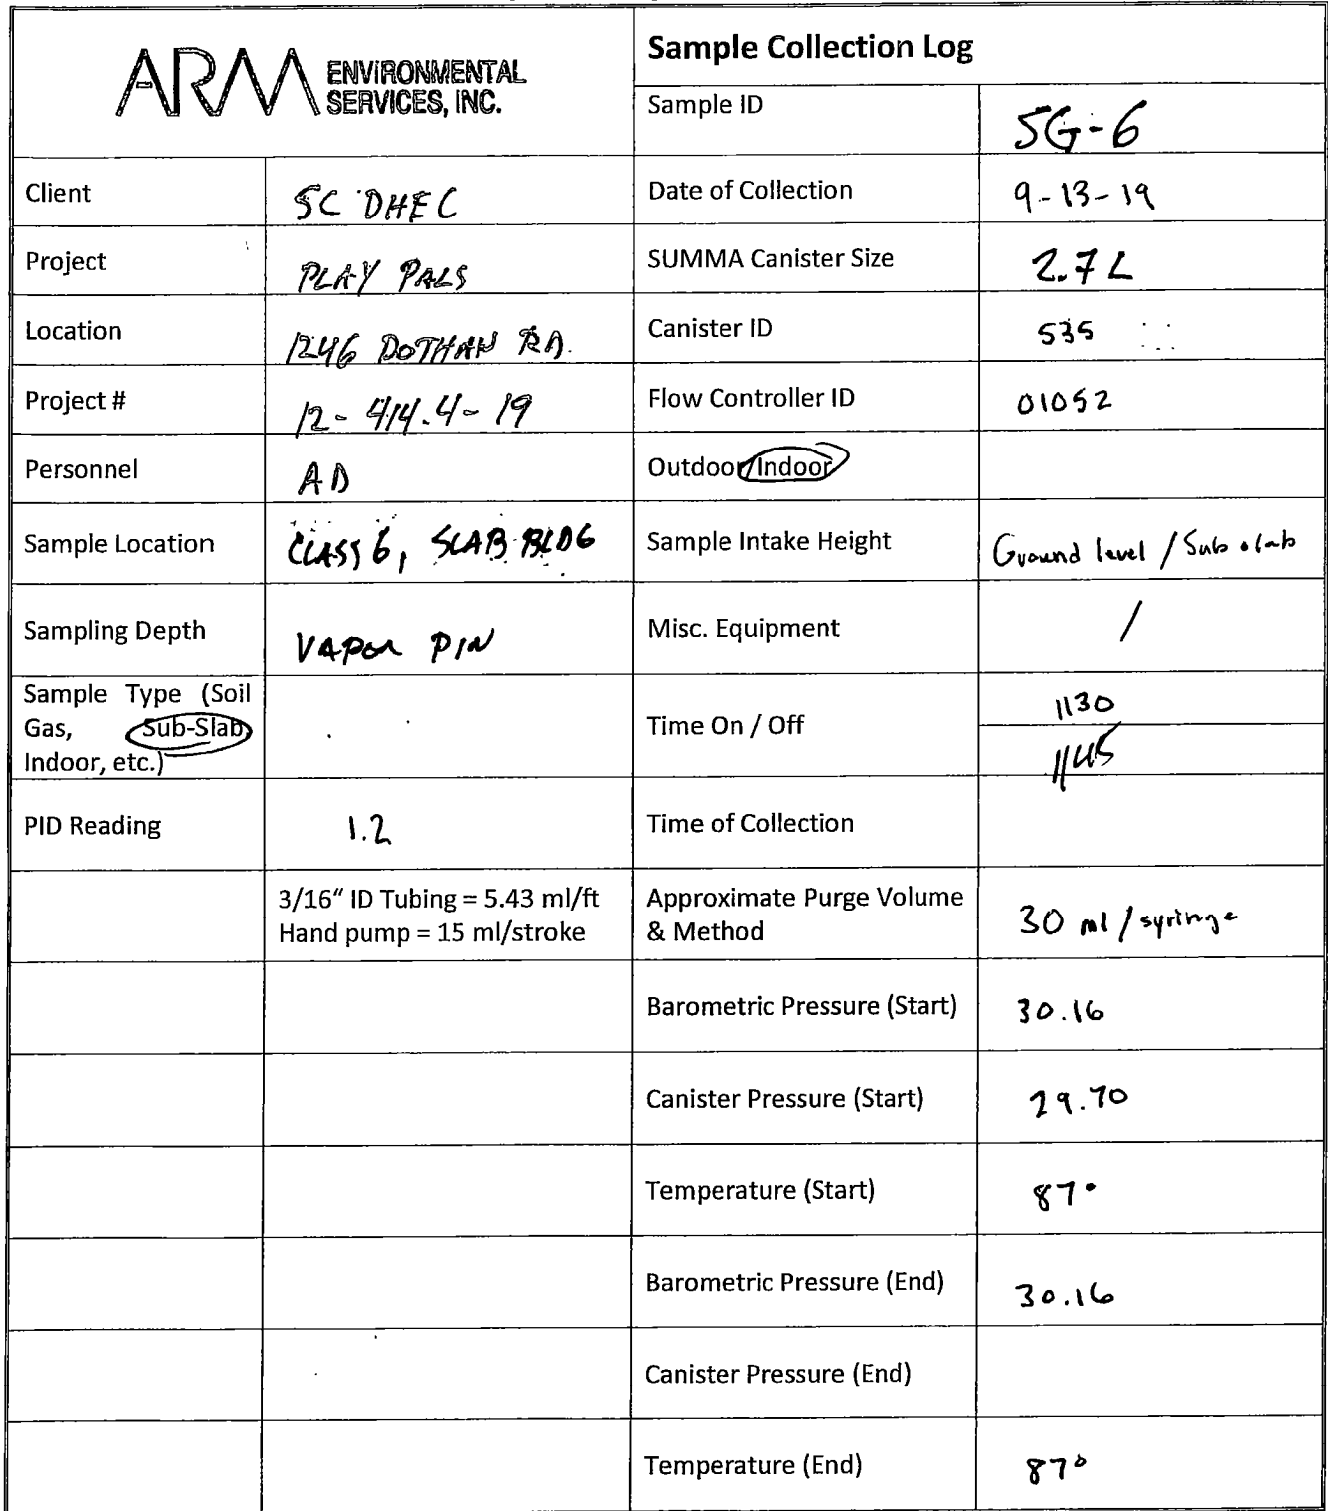 ARM ENVIRONMENTAL
SERVICES, INC.
Sample Collection Log
Sample ID
SG-6
Client
SC DHEC
Date of Collection
9-13-19
Project
PLAY PALS
SUMMA Canister Size
2.7 L
Location
1246 DOTHAN RD.
Canister ID
535
Project #
12-414.4-19
Flow Controller ID
01052
Personnel
AD
Outdoor/Indoor
Sample Location
CLASS 6, SLAB BLDG
Sample Intake Height
Ground level / Sub slab
Sampling Depth
VAPOR PIN
Misc. Equipment
/
Sample Type (Soil
Gas, Sub-Slab
Indoor, etc.)
Time On / Off
1130
1145
PID Reading
1.2
Time of Collection
3/16" ID Tubing = 5.43 ml/ft
Hand pump = 15 ml/stroke
Approximate Purge Volume
& Method
30 ml / syringe
Barometric Pressure (Start)
30.16
Canister Pressure (Start)
29.70
Temperature (Start)
87°
Barometric Pressure (End)
30.16
Canister Pressure (End)
Temperature (End)
87°